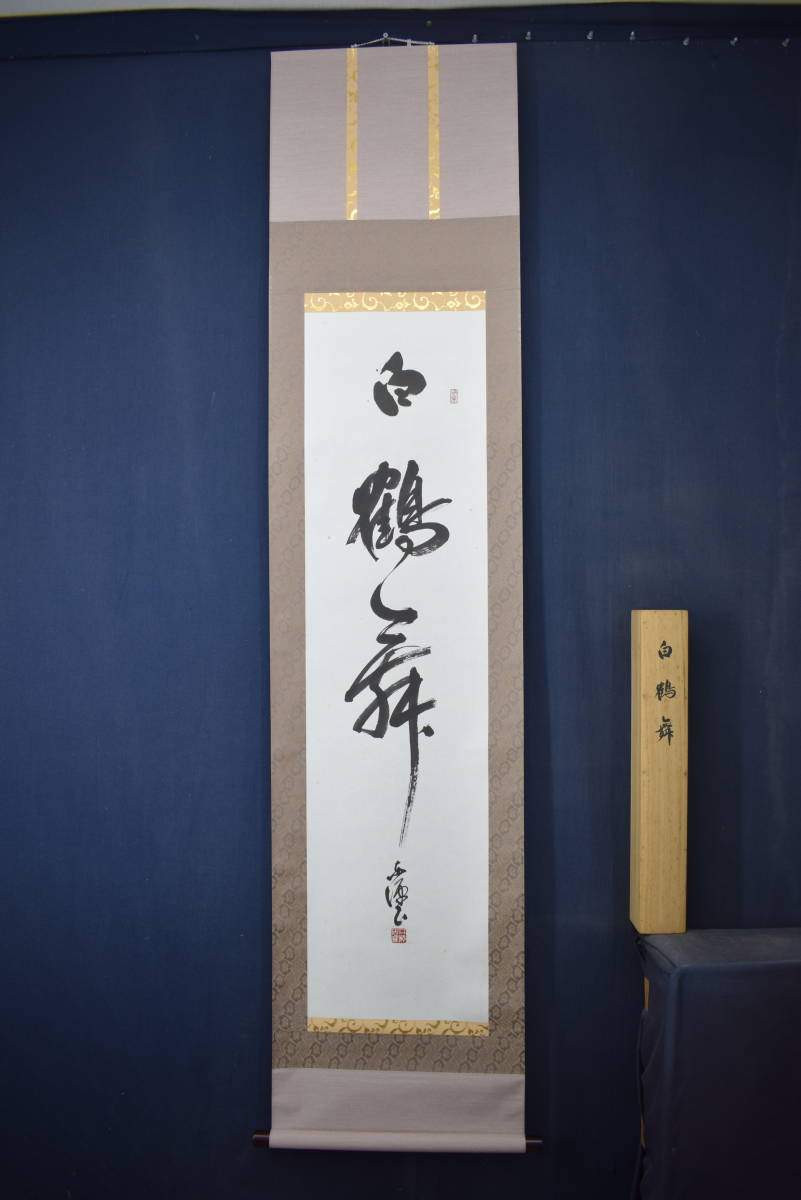 白鶴舞
白鶴舞